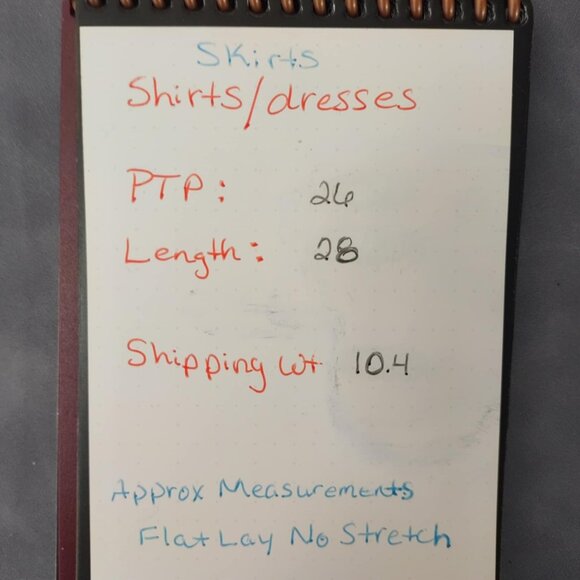 Skirts
Shirts/dresses
PTP: 26
Length: 28
Shipping wt 10.4
Approx Measurements
Flat Lay No Stretch